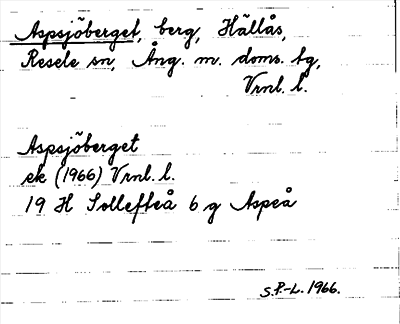 Aspsjöberget, berg, Hällås,
Resele sn, Ång. m. doms. tg,
Vrnl. l.
Aspsjöberget
ek (1966) Vrnl. l.
19 H Sollefteå 6 g Aspeå
S.P.-L. 1966.